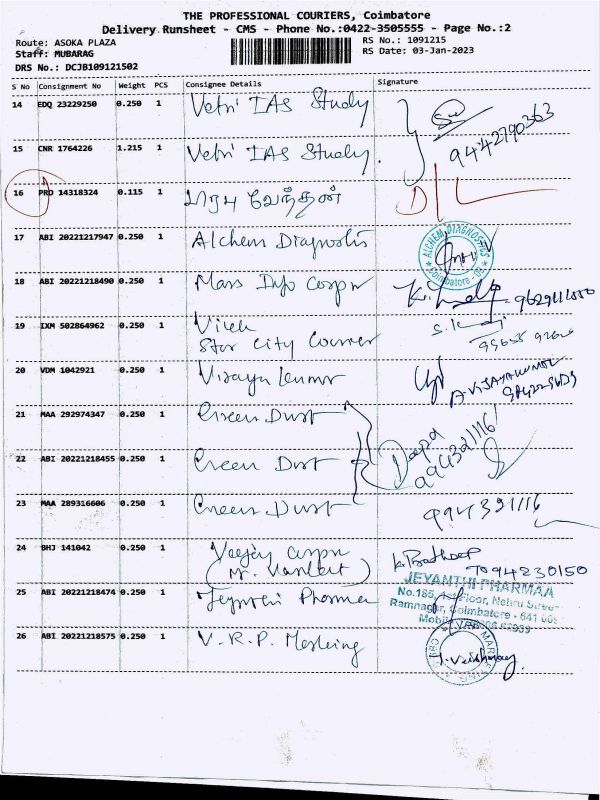 THE PROFESSIONAL COURIERS, Coimbatore
Delivery Runsheet - CMS - Phone No.:0422-3505555 - Page No.:2
Route: ASOKA PLAZA
Staff: MUBARAG
DRS No.: DCJB109121502
RS No.: 1091215
RS Date: 03-Jan-2023
S No Consignment No Weight PCS Consignee Details Signature
14 EDQ 23229250 0.250 1 Vetri IAS Study
9442790363
15 CNR 1764226 1.215 1 Vetri IAS Study.
16 PRD 14318324 0.115 1 D/L
17 ABI 20221217947 0.250 1 Alchem Diagnostis
ALCHEM DIAGNOSTICS
Coimbatore
18 ABI 20221218490 0.250 1 Mass Info Corpn
19 IXM 502864962 0.250 1 Vivek
Star City Courier
20 VDM 1042921 0.250 1 Vijayakumar
A. VIJAYAKUMAR
21 MAA 292974347 0.250 1 Green Dust
Deepa
22 ABI 20221218455 0.250 1 Green Dust
994321116
23 MAA 289316606 0.250 1 Green Dust
24 BHJ 141042 0.250 1 Veejay Corpn
K. Pradheep
JEYANTHI PHARMAA
25 ABI 20221218474 0.250 1 Jeyanthi Pharma
No.185, 1st Floor, Nehru Street
Ramnagar, Coimbatore - 641 009
26 ABI 20221218575 0.250 1 V.R.P. Marketing